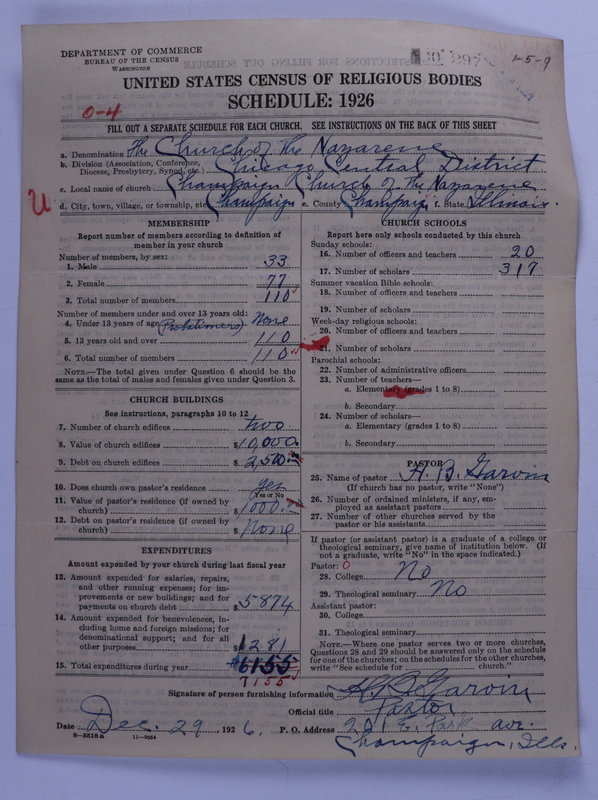 DEPARTMENT OF COMMERCE
BUREAU OF THE CENSUS
WASHINGTON
1-5-9
UNITED STATES CENSUS OF RELIGIOUS BODIES
SCHEDULE: 1926
0-4
FILL OUT A SEPARATE SCHEDULE FOR EACH CHURCH. SEE INSTRUCTIONS ON THE BACK OF THIS SHEET
a. Denomination The Church of the Nazarene
b. Division (Association, Conference, Diocese, Presbytery, Synod, etc.) Chicago Central District
c. Local name of church Champaign Church of the Nazarene
U
d. City, town, village, or township, etc. Champaign e. County Champaign f. State Illinois.
MEMBERSHIP
Report number of members according to definition of
member in your church
Number of members, by sex:
1. Male 33
2. Female 77
3. Total number of members 110
Number of members under and over 13 years old:
4. Under 13 years of age (Probationers) None
5. 13 years old and over 110
6. Total number of members 110
NOTE.—The total given under Question 6 should be the
same as the total of males and females given under Question 3.
CHURCH BUILDINGS
See instructions, paragraphs 10 to 12
7. Number of church edifices two
8. Value of church edifices $10,000
9. Debt on church edifices $2,500
10. Does church own pastor's residence yes
Yes or No
11. Value of pastor's residence (if owned by
church) $1000.
12. Debt on pastor's residence (if owned by
church) $none
EXPENDITURES
Amount expended by your church during last fiscal year
13. Amount expended for salaries, repairs,
and other running expenses; for im-
provements or new buildings; and for
payments on church debt $5874
14. Amount expended for benevolences, in-
cluding home and foreign missions; for
denominational support; and for all
other purposes 1281
15. Total expenditures during year $6155
7155
CHURCH SCHOOLS
Report here only schools conducted by this church
Sunday schools:
16. Number of officers and teachers 20
17. Number of scholars 317
Summer vacation Bible schools:
18. Number of officers and teachers
19. Number of scholars
Week-day religious schools:
20. Number of officers and teachers
21. Number of scholars
Parochial schools:
22. Number of administrative officers
23. Number of teachers—
a. Elementary (grades 1 to 8)
b. Secondary
24. Number of scholars—
a. Elementary (grades 1 to 8)
b. Secondary
PASTOR
25. Name of pastor H. B. Garvin
(If church has no pastor, write "None")
26. Number of ordained ministers, if any, em-
ployed as assistant pastors
27. Number of other churches served by the
pastor or his assistants
If pastor (or assistant pastor) is a graduate of a college or
theological seminary, give name of institution below. (If
not a graduate, write "No" in the space indicated.)
Pastor: 0
28. College No
29. Theological seminary No
Assistant pastor:
30. College
31. Theological seminary
NOTE.—Where one pastor serves two or more churches,
Questions 28 and 29 should be answered only on the schedule
for one of the churches; on the schedules for the other churches,
write "See schedule for church."
Signature of person furnishing information H. B. Garvin
Official title Pastor
Date Dec. 29, 1926. P. O. Address 201 E. Park ave.
8-5518a 11-9054
Champaign, Ills.